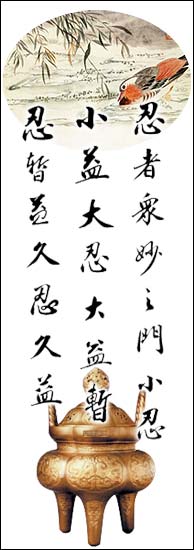 忍者眾妙之門小忍
小益大忍大益暫
忍暂益久忍久益